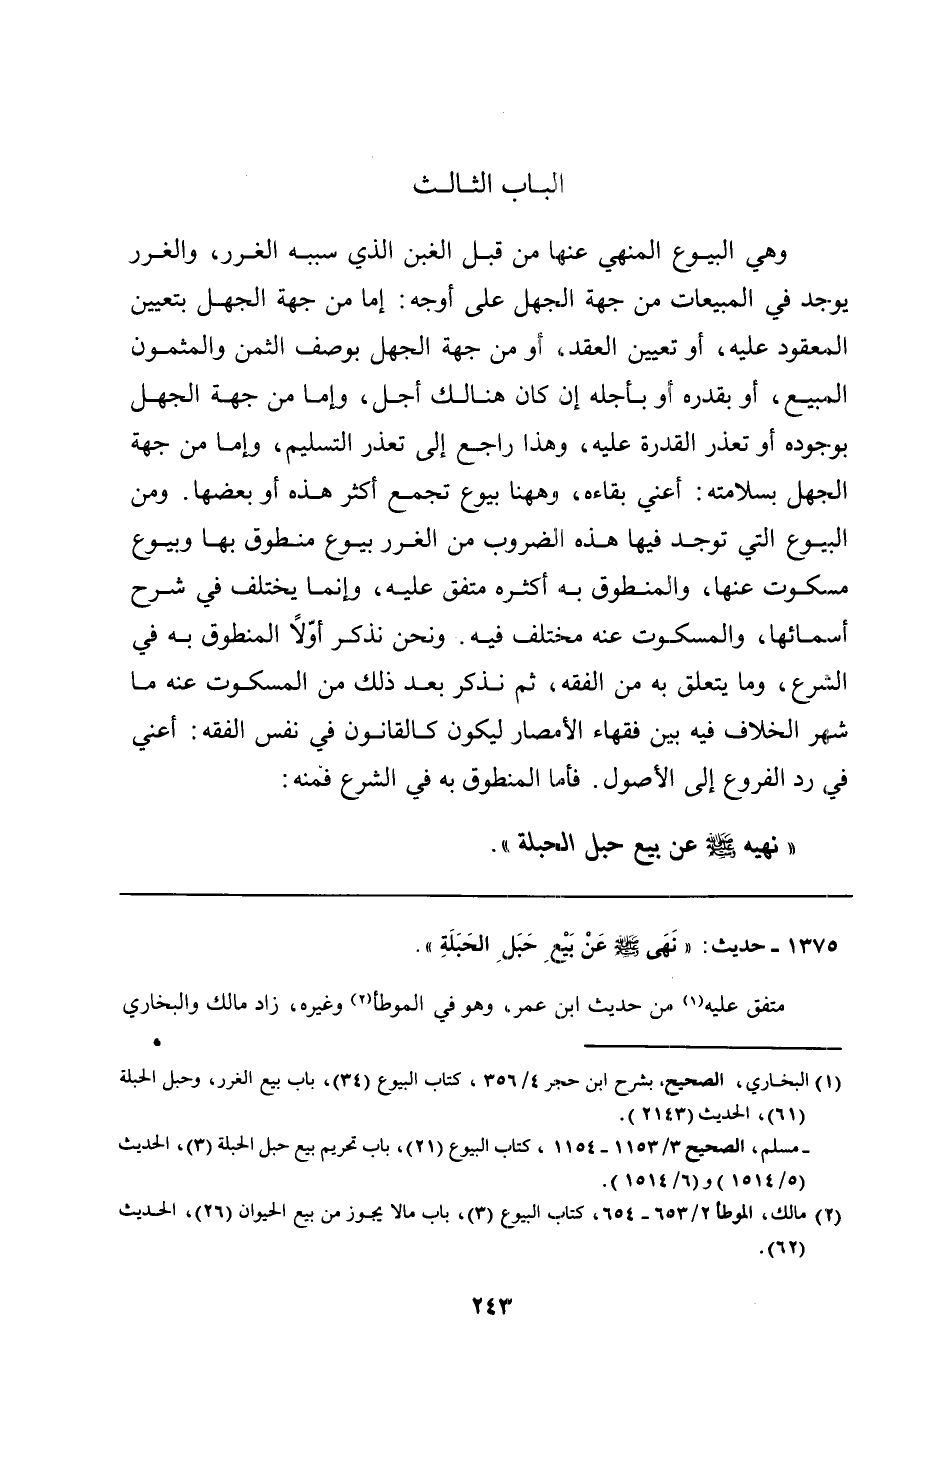 الباب الثالث
وهي البيوع المنهي عنها من قبل الغبن الذي سببه الغرر، والغرر
يوجد في المبيعات من جهة الجهل على أوجه: إما من جهة الجهل بتعيين
المعقود عليه، أو تعيين العقد، أو من جهة الجهل بوصف الثمن والمثمون
المبيع، أو بقدره أو بأجله إن كان هنالك أجل، وإما من جهة الجهل
بوجوده أو تعذر القدرة عليه، وهذا راجع إلى تعذر التسليم، وإما من جهة
الجهل بسلامته: أعني بقاءه، وههنا بيوع تجمع أكثر هذه أو بعضها. ومن
البيوع التي توجد فيها هذه الضروب من الغرر بيوع منطوق بها وبيوع
مسكوت عنها، والمنطوق به أكثره متفق عليه، وإنما يختلف في شرح
أسمائها، والمسكوت عنه مختلف فيه. ونحن نذكر أوّلاً المنطوق به في
الشرع، وما يتعلق به من الفقه، ثم نذكر بعد ذلك من المسكوت عنه ما
شهر الخلاف فيه بين فقهاء الأمصار ليكون كالقانون في نفس الفقه: أعني
في رد الفروع إلى الأصول. فأما المنطوق به في الشرع فمنه:
« نهيه ﷺ عن بيع حبل الحبلة ».
١٣٧٥ ـ حديث: « نَهَى ﷺ عَنْ بَيْعِ حَبَلِ الحَبَلَةِ ».
متفق عليه(١) من حديث ابن عمر، وهو في الموطأ(٢) وغيره، زاد مالك والبخاري
(١) البخاري، الصحيح، بشرح ابن حجر ٤/ ٣٥٦ ، كتاب البيوع (٣٤)، باب بيع الغرر، وحبل الحبلة
(٦١)، الحديث (٢١٤٣).
ـ مسلم، الصحيح ٣/ ١١٥٣ ـ ١١٥٤ ، كتاب البيوع (٢١)، باب تحريم بيع حبل الحبلة (٣)، الحديث
(٥/ ١٥١٤) و(٦/ ١٥١٤).
(٢) مالك، الموطأ ٢/ ٦٥٣ ـ ٦٥٤، كتاب البيوع (٣)، باب مالا يجوز من بيع الحيوان (٢٦)، الحديث
(٦٢).
٢٤٣